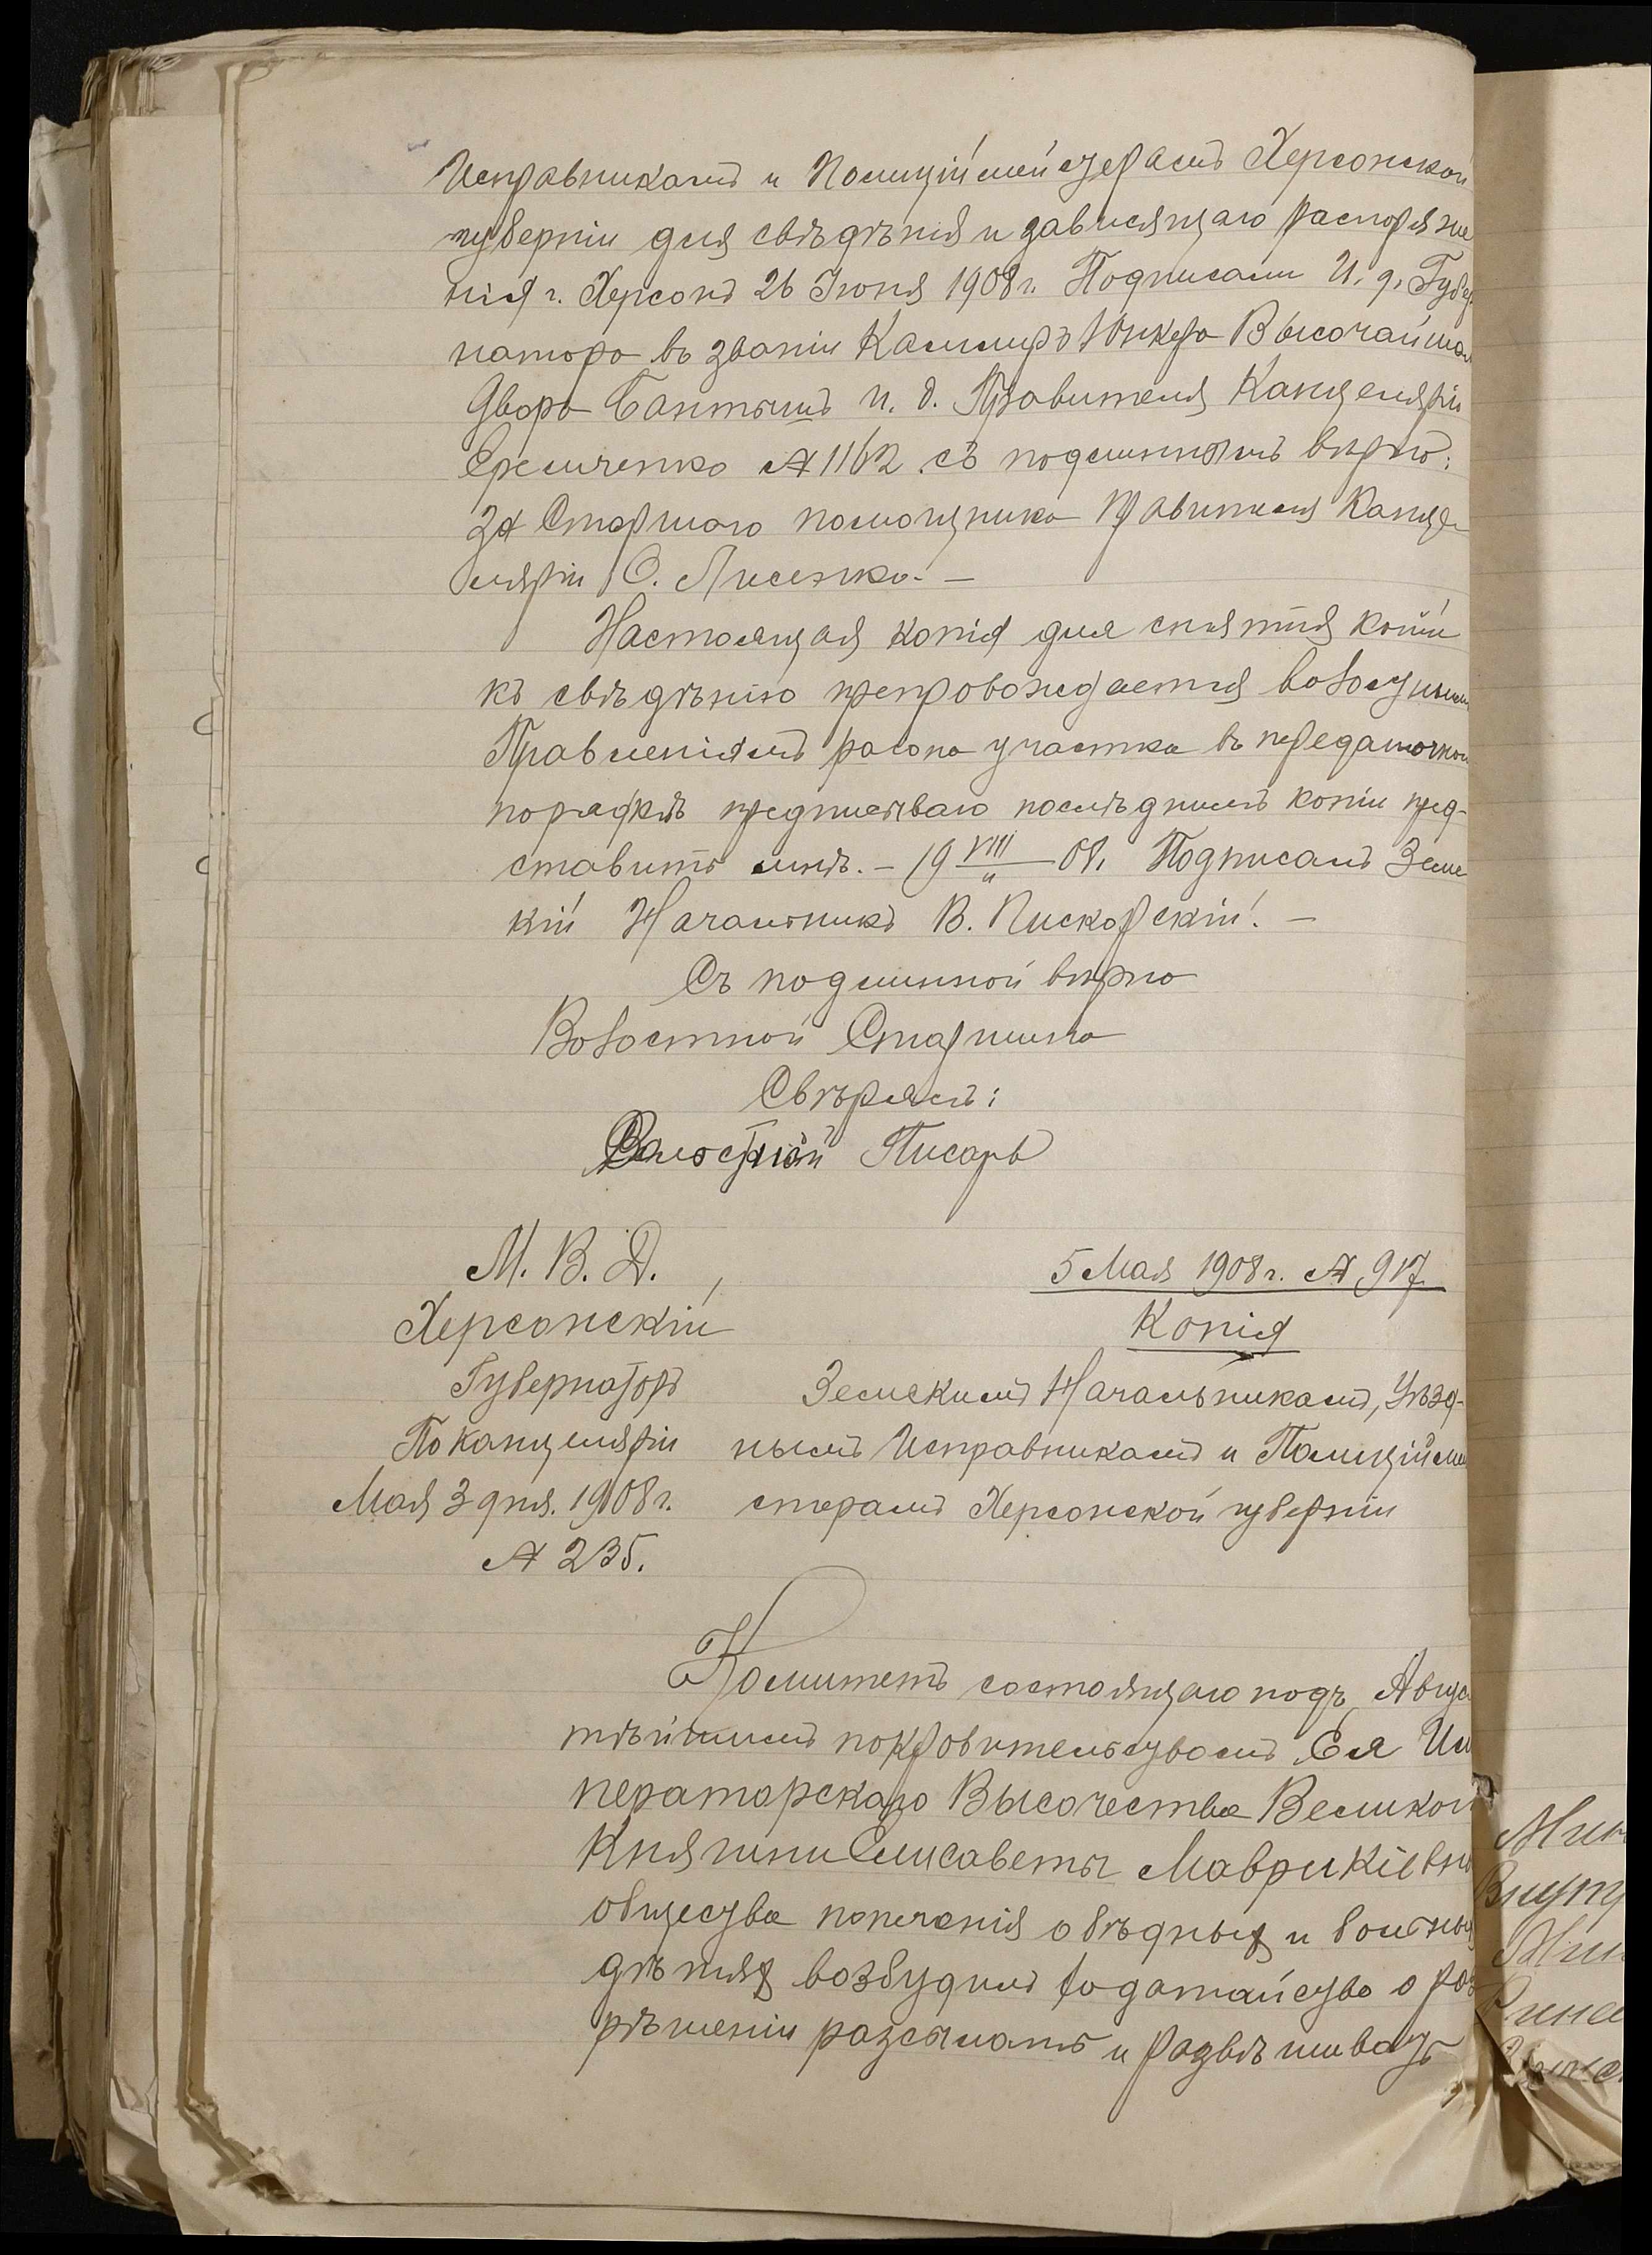 Исправникамъ и Полиціймейстерамъ Херсонской
губерніи для свѣдѣнія и зависящаго распоряже
нія г. Херсонъ 26 Іюня 1908 г. Подписали И. д. Губер
натора въ званіи Камеръ Юнкера Высочайшаго
Двора Бантышъ И. д. Правителя Канцеляріи
Еремченко № 1162 съ подлиннымъ вѣрно:
За Старшаго помощника Правителя Канце-
ляріи О. Лисенко. —
Настоящая копія для снятія копіи
къ свѣдѣнію препровождается волостнымъ
Правленіямъ раіона участка въ передаточномъ
порядкѣ предписываю послѣднимъ копіи пред-
ставить мнѣ. – 19 VIII/11 08. Подписалъ Земс
кій Начальникъ В. Пискорскій. —
Съ подлинной вѣрно
Волостной Старшина
Свѣрялъ:
Волостной Писарь
М. В. Д.
Херсонскій
Губернаторъ
По Канцеляріи
Мая 3 дня. 1908 г.
№ 235.
5 Мая 1908 г. № 917
Копія
Земскимъ Начальникамъ, Уѣзд-
нымъ Исправникамъ и Полиціймей
стерамъ Херсонской губерніи
Комитетъ состоящаго подъ Август
тѣйшимъ покровительствомъ Ея Им
ператорскаго Высочества Великой
Княгини Елисаветы Маврикіевны
общества попеченія о бѣдныхъ и больныхъ
дѣтяхъ возбудилъ ходатайство о раз
рѣшеніи разсылать и развѣшивать